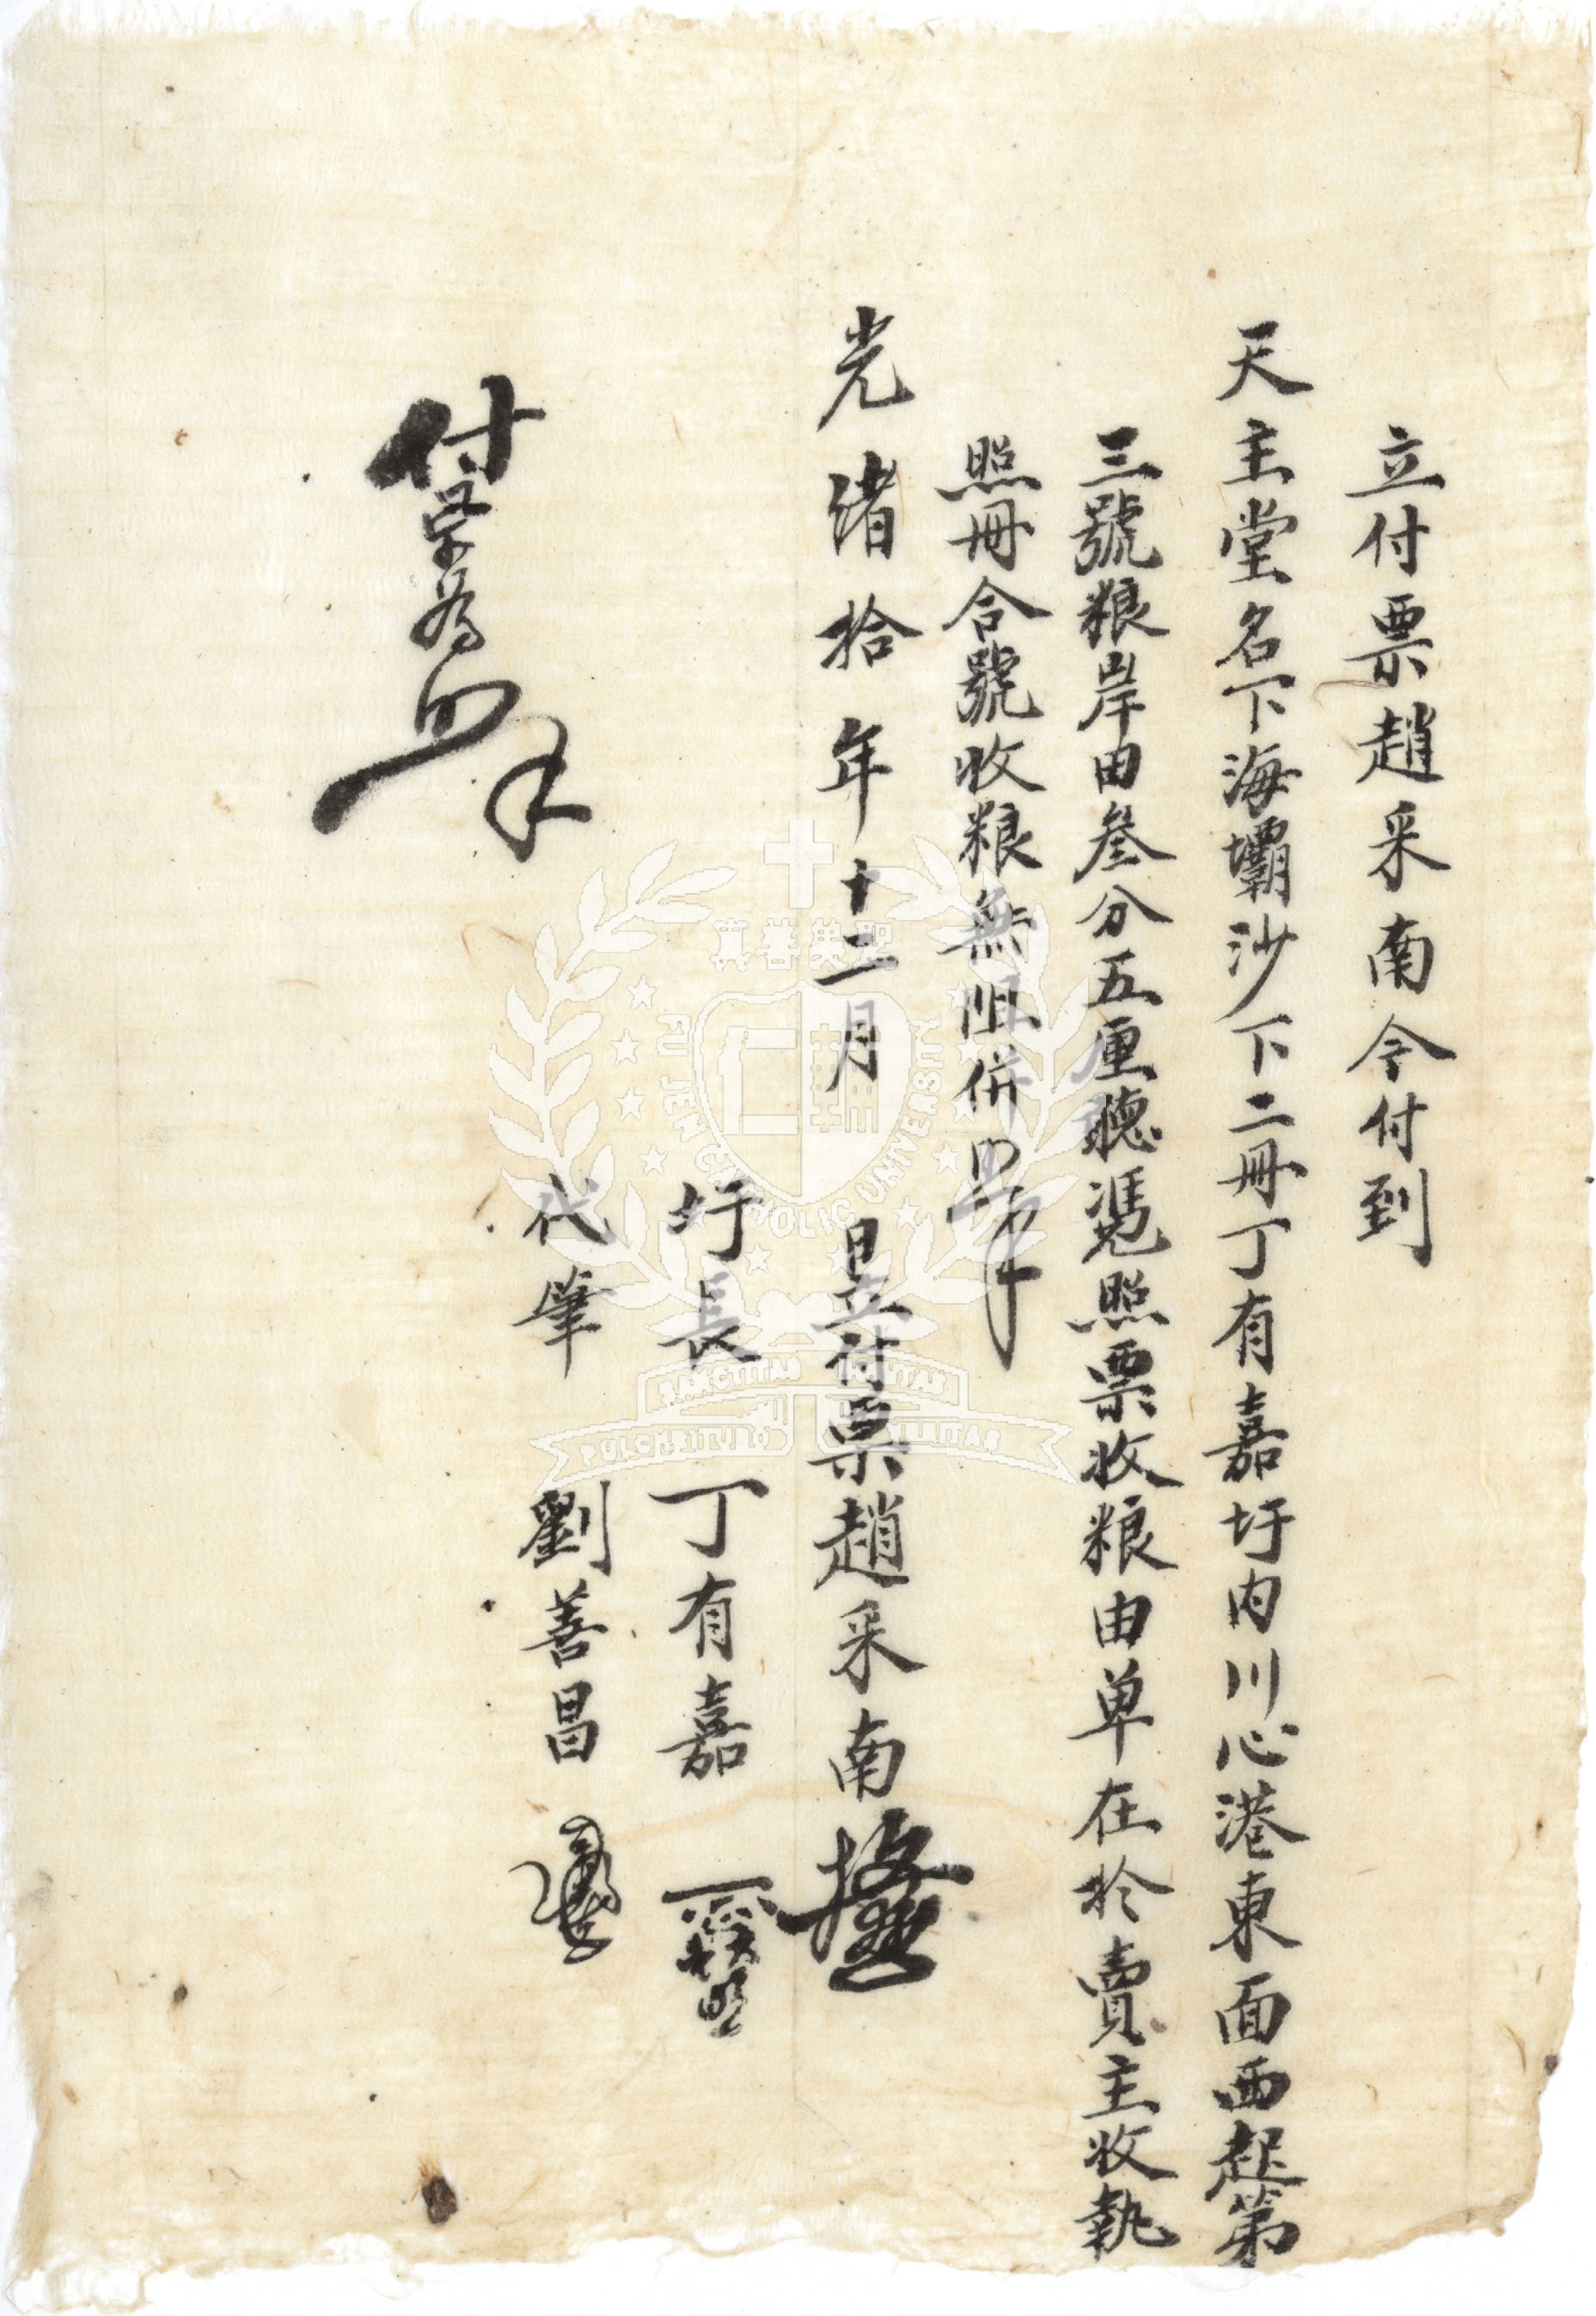 立付票趙采南今付到
天主堂名下海壩沙下二冊丁有嘉圩内川心港東面西起第
三號粮岸田叄分五厘聽憑照票收粮由单在於賣主收執
照冊合號收粮無阻併照
光緒拾年十二月 日立付票趙采南
圩長 丁有嘉
代筆 劉善昌
付票為照
真善美聖
FU JEN CATHOLIC UNIVERSITY
SANCTITAS BONITAS
PULCHRITUDO VERITAS